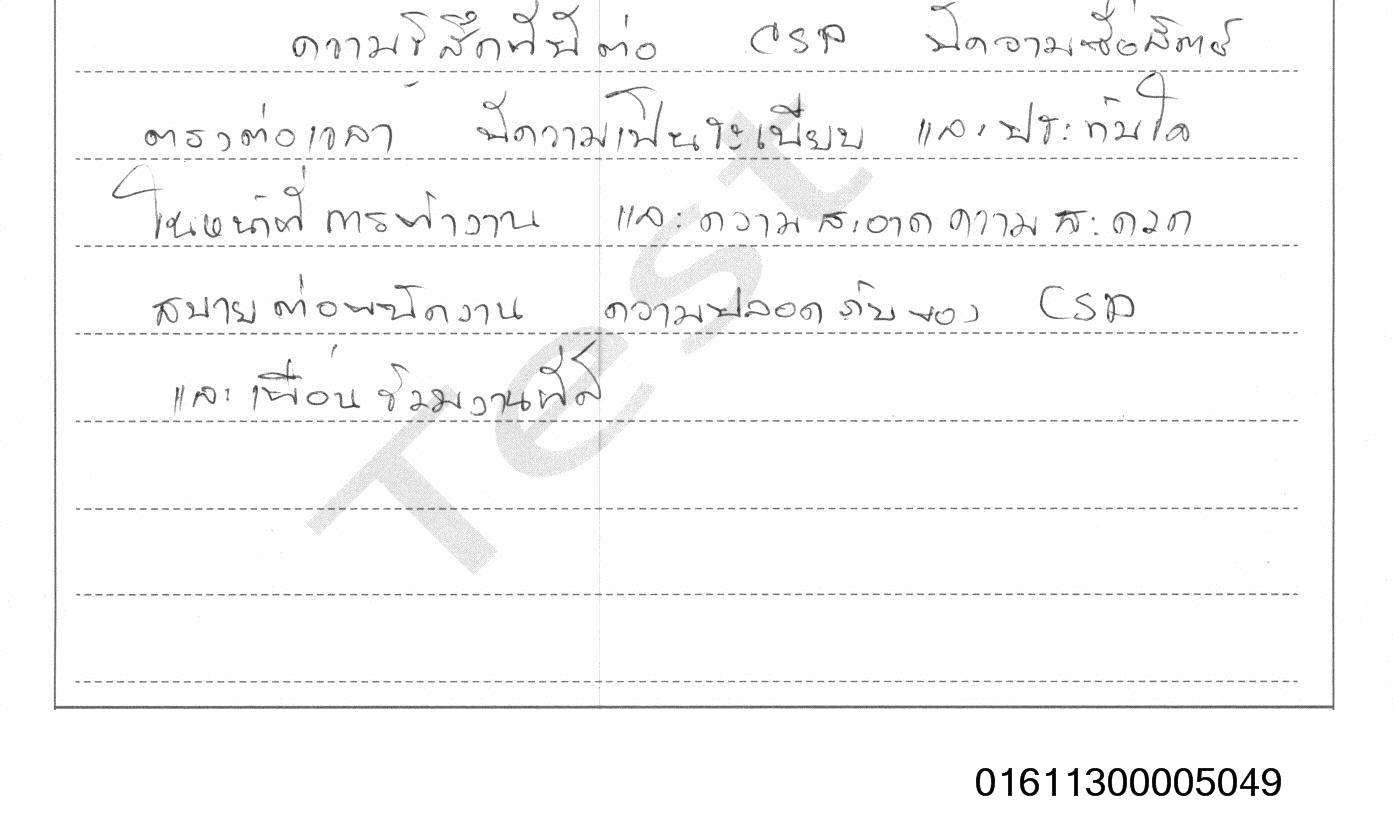 ความรู้สึกที่มีต่อ CSP มีความซื่อสัตย์
ตรงต่อเวลา มีความเป็นระเบียบ และประทับใจ
ในหน้าที่การทำงาน และความสะอาดความสะดวก
สบายต่อพนักงาน ความปลอดภัยของ CSP
และเพื่อนร่วมงานที่ดี
Test
01611300005049